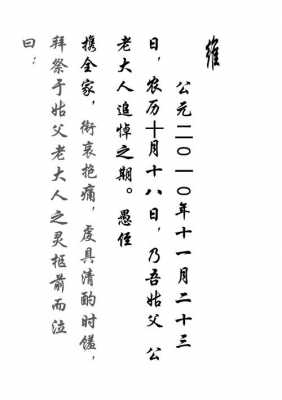 维
公元二〇一〇年十一月二十三
日，农历十月十八日，乃吾姑父 公
老大人追悼之期。愚侄
携全家，衔哀抱痛，虔具清酌时馐，
拜祭于姑父老大人之灵柩前而泣
曰：